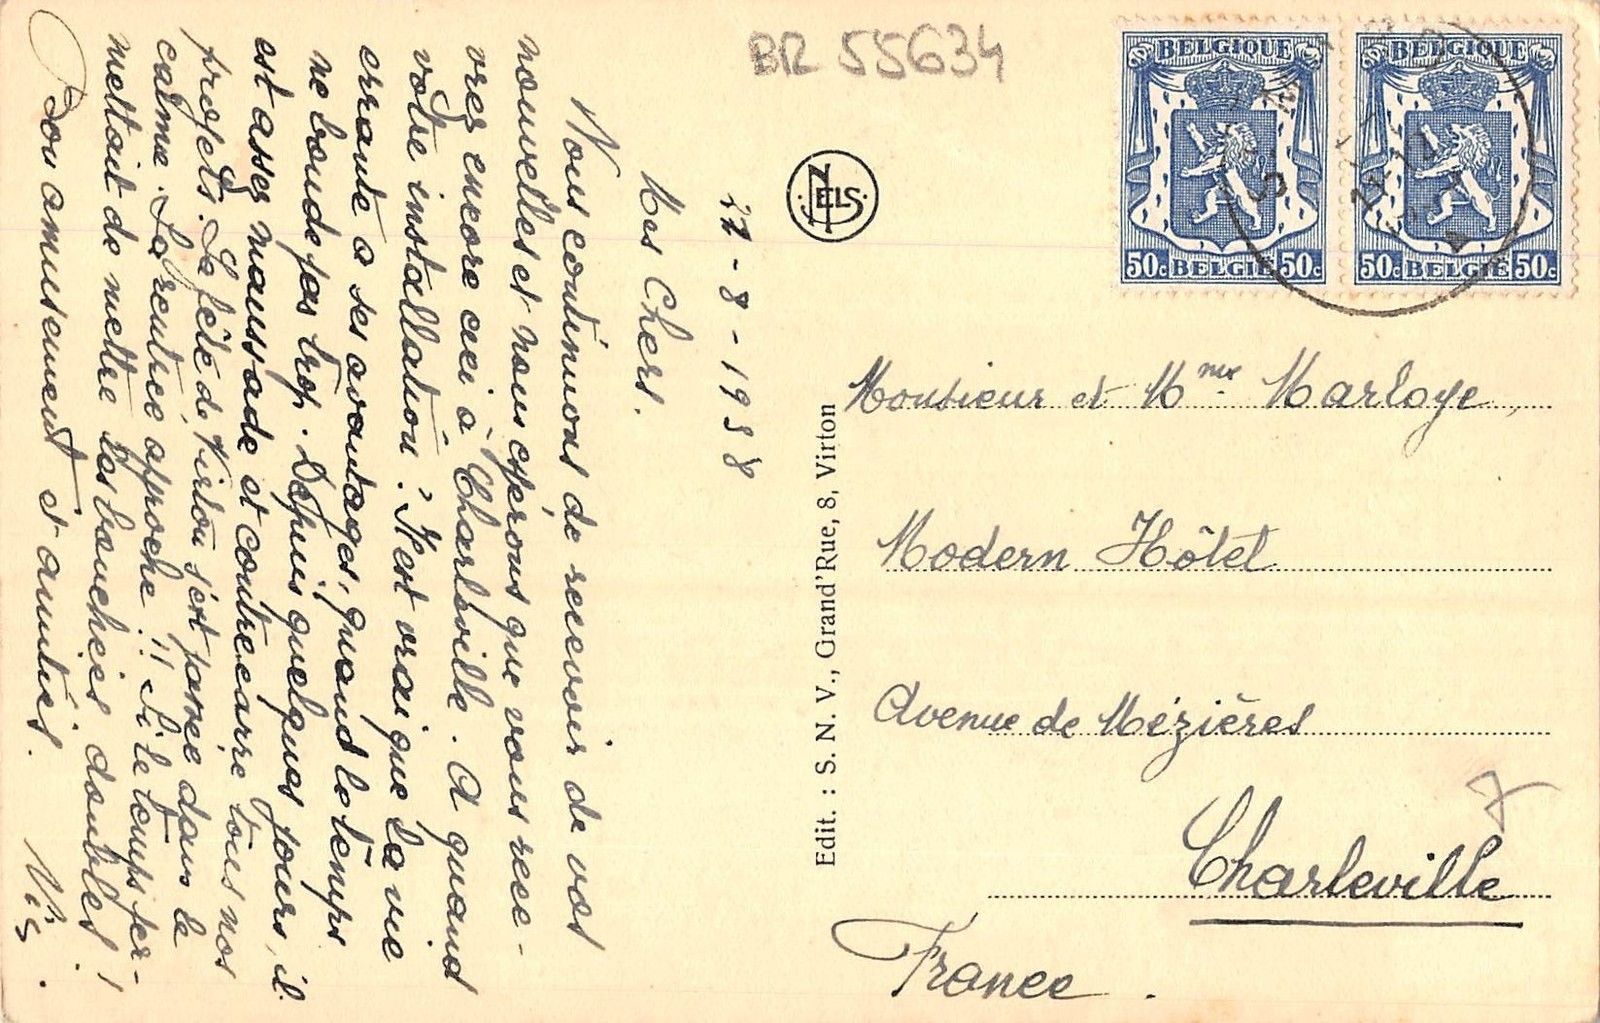 BR 55634
BELGIQUE
50c BELGIË 50c
BELGIQUE
50c BELGIË 50c
NELS
22-8-1938
Mes Chers.
Nous continuons de recevoir de vos
nouvelles et nous espérons que vous rece-
vrez encore ceci à Charleville. A quand
votre installation ? Il est vrai que la vie
errante a ses avantages, quand le temps
ne boude pas trop. Depuis quelques jours, il
est assez maussade et contrecarre tous nos
projets. La fête de Virton s'est passée dans le
calme. La rentrée approche !! Si le temps per-
mettait de mettre les bouchées doubles !!
Bon amusement et amitiés.
Edit. : S. N. V., Grand'Rue, 8, Virton
Monsieur et Mme Marloye,
Modern Hôtel
Avenue de Mézières
Charleville
France.